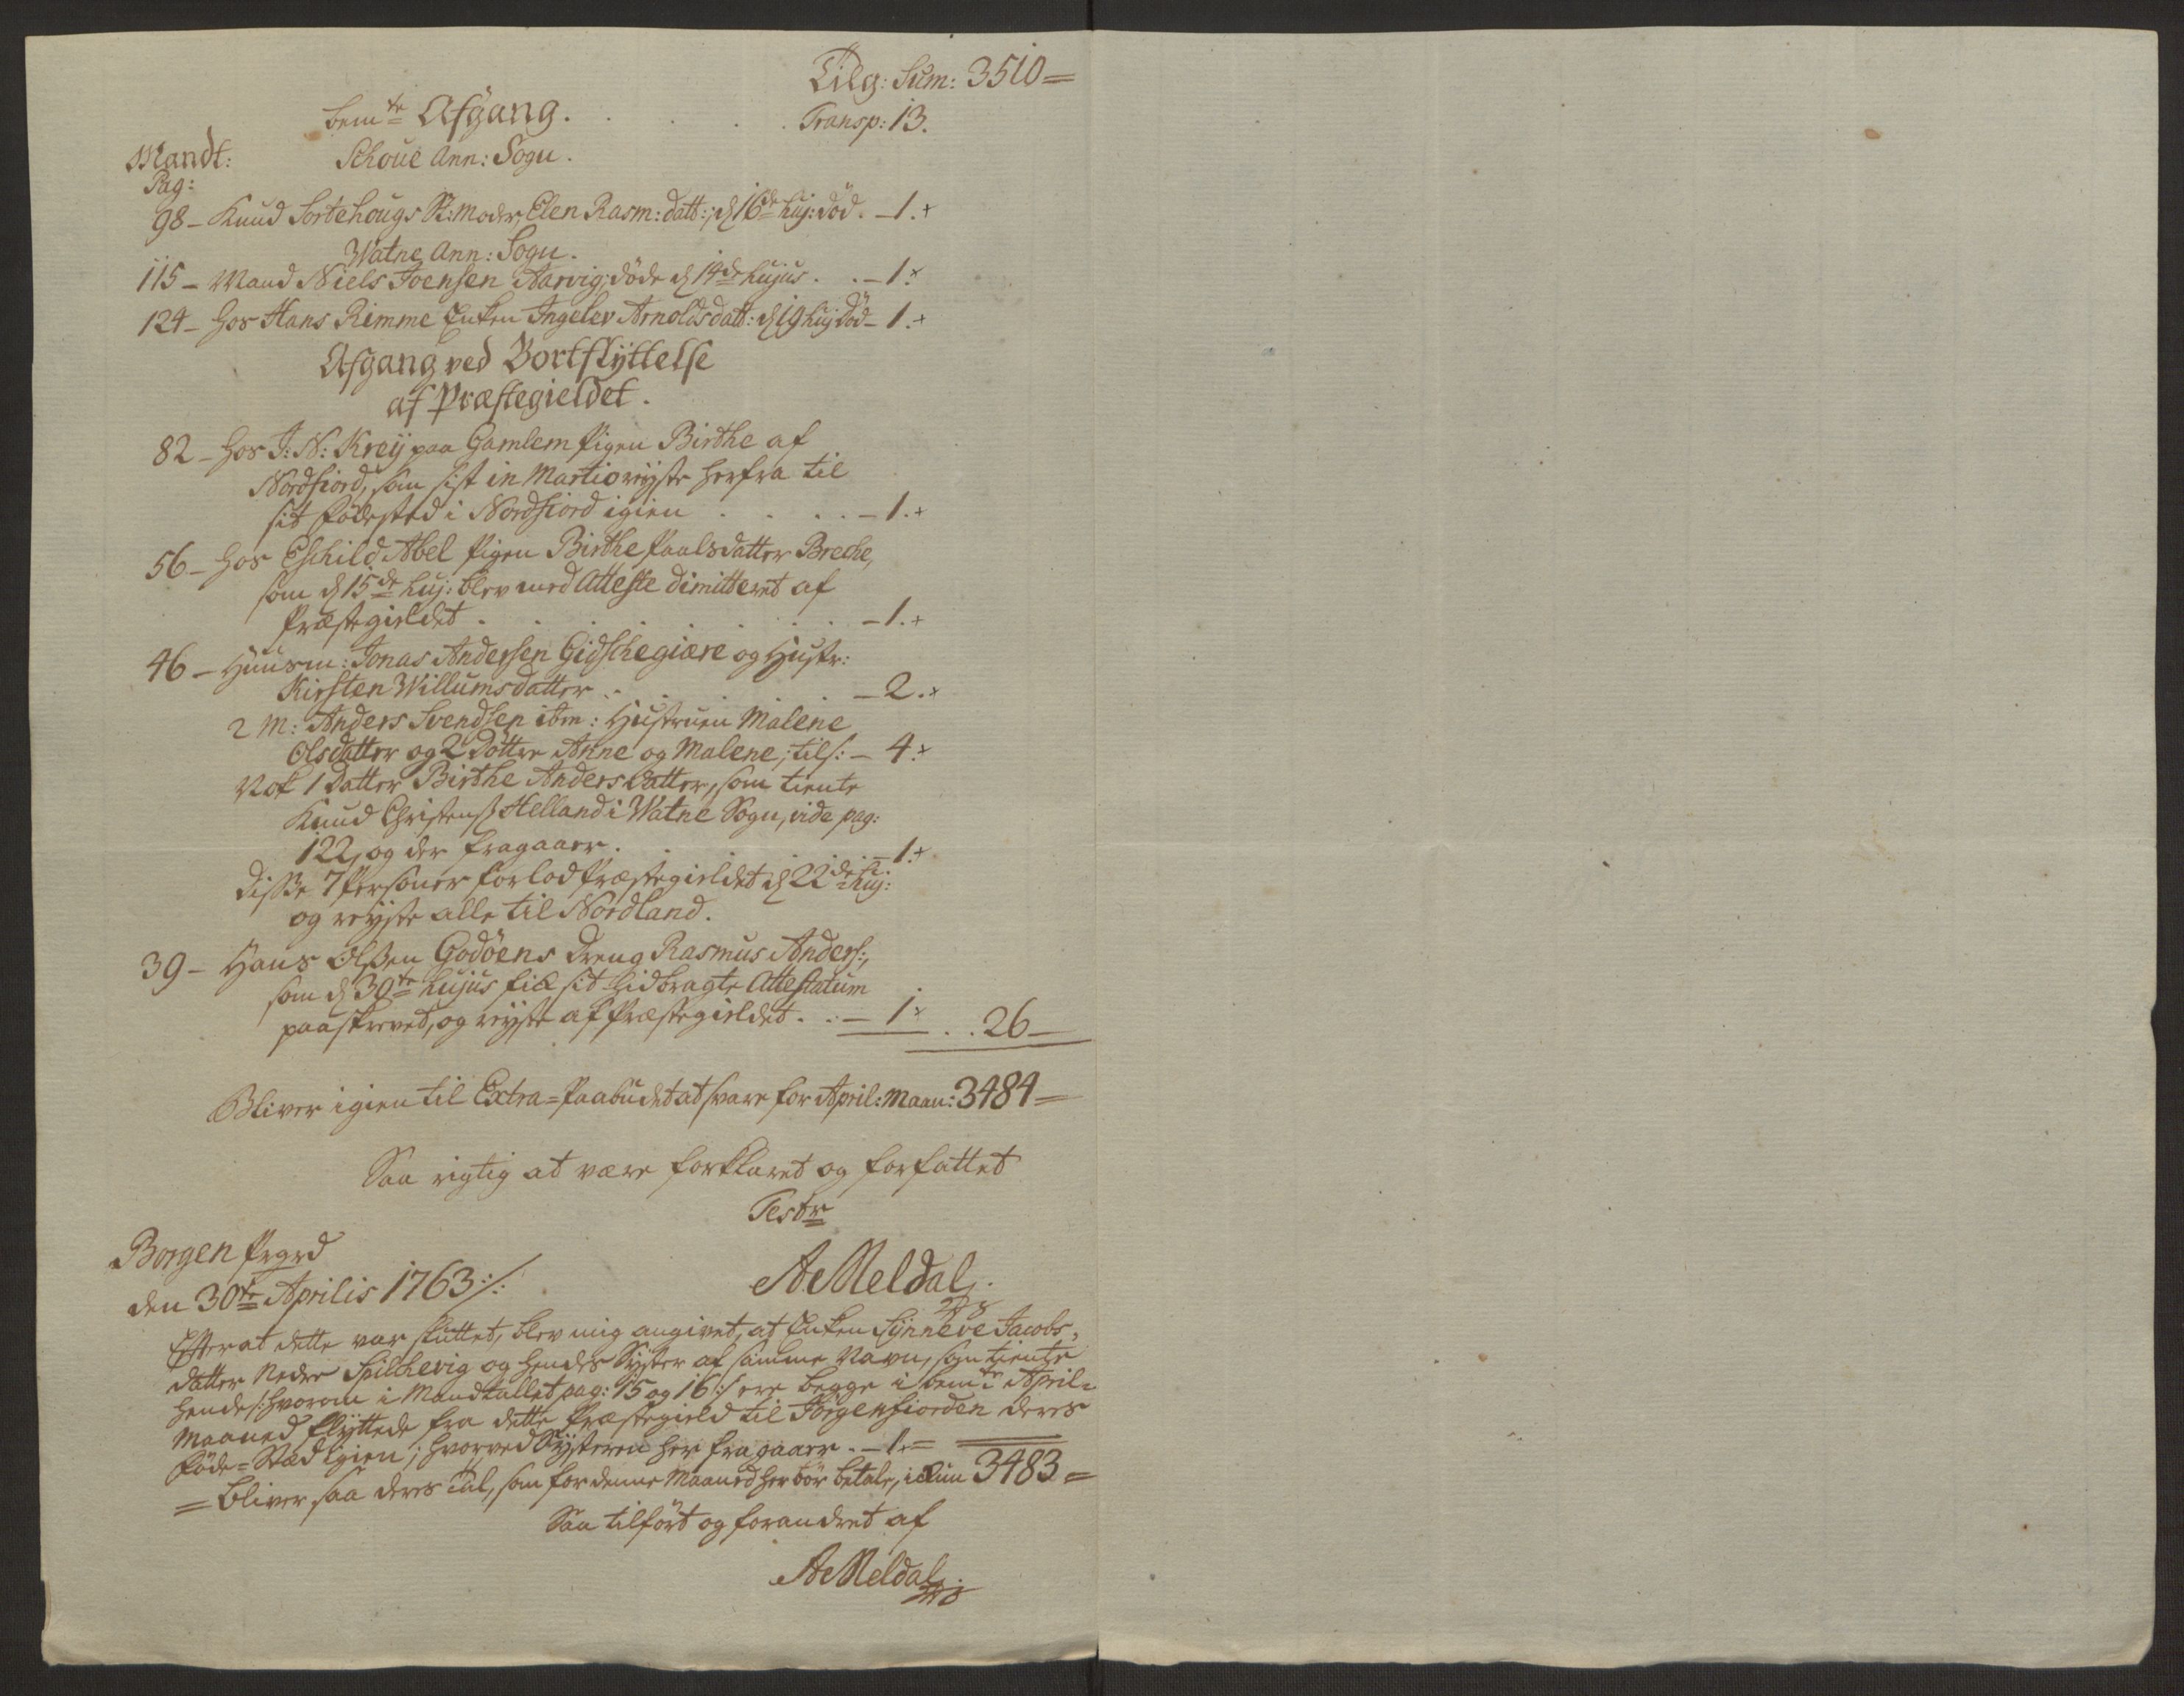 Tilg: Sum: 3510 =
bem.te Afgang. . . . . Transp: 13.
Mandt: Schoue Ann: Sogn.
Pag:
98 - Knud Sortehougs St: Moder, Elen Rasm: datt:, d 16de huj: död. - 1.+
Watne Ann: Sogn.
115 - Mand Niels Joensen Aarvig, döde d 14de hujus . . - 1.+
124 - hos Hans Rimme Enken Ingelev Arnoldsdatt: d 19 huj död - 1.+
Afgang ved Bortflyttelse
af Præstegieldet.
82 - hos J: N: Kreij paa Gamlem Pigen Birthe af
Nordfiord, som sist in Martio rejste herfra til
sit födested i Nordfiord igien . . . . - 1.+
56 - hos Eschild Abel Pigen Birthe Paalsdatter Breche,
som d 15de huj: blev med Atteste dimitteret af
Præstegieldet . . . . . . - 1.+
46 - Huusm: Jonas Andersen Gidschegiære og Hustr:
Kirsten Willumsdatter . . . . - 2.+
2 M: Anders Svendsen ibm: Hustruen Malene
Olsdatter og 2 Döttre Anne og Malene; tils: - 4.+
Nok 1 Datter Birthe Andersdatter, som tiente
Knud Christens Helland i Watne Sogn, vide pag:
122, og der fragaaer. . . . . - 1.+
Disse 7 Personer forlod Præstegieldet d 22de huj:
og rejste alle til Nordland.
39 - Hans Olssen Godöens Dreng Rasmus Anders:,
som d 30te hujus fik sit hidbragte Attestatum
paaskrevet, og rejste af Præstegieldet . . - 1.+ . . 26 -
Bliver igien til Extra=Paabudet at svare for April: Maan: 3484 =
Saa rigtig at være forklaret og forfattet
Test.
Borgen Prgrd
den 30te Aprilis 1763 :/:
A Meldal.
Efter at dette var sluttet, blev mig angivet, at Enken Synneve Jacobs-
datter Nedre Spilchevig og hendes Syster af samme Navn, som tiente
hende /: hvorom i Mandtallet pag: 15 og 16 :/ ere begge i bemte April-
Maaned flyttede fra dette Præstegield til Jörgenfiorden deres
föde=Stæd igien; hvorved Systeren her fragaaer . - 1. =
= bliver saa deres Tal, som for denne Maaned her bör betale, ickun 3483 =
Saa tilfört og forandret af
A Meldal.